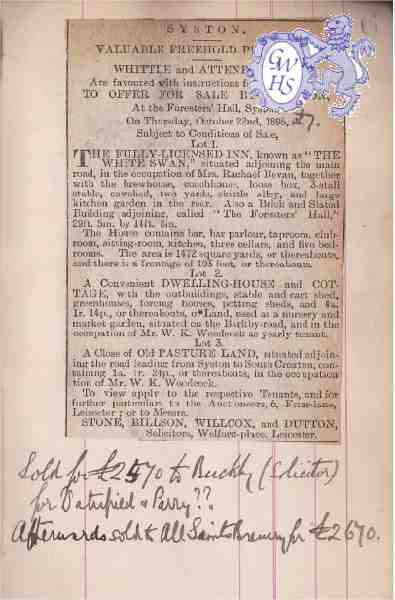 SYSTON.
VALUABLE FREEHOLD
WHITTLE and ATTEN
Are favoured with instructions
TO OFFER FOR SALE
At the Foresters' Hall, Syston
On Thursday, October 22nd, 1896, at 7.
Subject to Conditions of Sale,
Lot 1.
THE FULLY-LICENSED INN, known as "THE
WHITE SWAN," situated adjoining the main
road, in the occupation of Mrs. Rachael Bevan, together
with the brewhouse, coachhouse, loose box, 3-stall
stable, cowshed, two yards, skittle alley, and large
kitchen garden in the rear. Also a Brick and Slated
Building adjoining, called "The Foresters' Hall,"
29ft. 5in. by 14ft. 5in.
The House contains bar, bar parlour, taproom, club-
room, sitting-room, kitchen, three cellars, and five bed-
rooms. The area is 1472 square yards, or thereabouts,
and there is a frontage of 103 feet, or thereabouts.
Lot 2.
A Convenient DWELLING-HOUSE and COT-
TAGE, with the outbuildings, stable and cart shed,
greenhouses, forcing houses, potting sheds, and 4a.
1r. 14p., or thereabouts, of Land, used as a nursery and
market garden, situated on the Barkby-road, and in the
occupation of Mr. W. K. Woodcock as yearly tenant.
Lot 3.
A Close of Old PASTURE LAND, situated adjoin-
ing the road leading from Syston to South Croxton, con-
taining 1a. 1r. 28p., or thereabouts, in the occupation
tion of Mr. W. K. Woodcock.
To view apply to the respective Tenants, and for
further particulars to the Auctioneers, 6, Friar-lane,
Leicester; or to Messrs.
STONE, BILLSON, WILLCOX, and DUTTON,
Solicitors, Welford-place, Leicester.
GWHS
Sold for £2570 to Buckby (Solicitor)
for Patrifield & Parry??
Afterwards sold to All Saints Brewery for £2670.